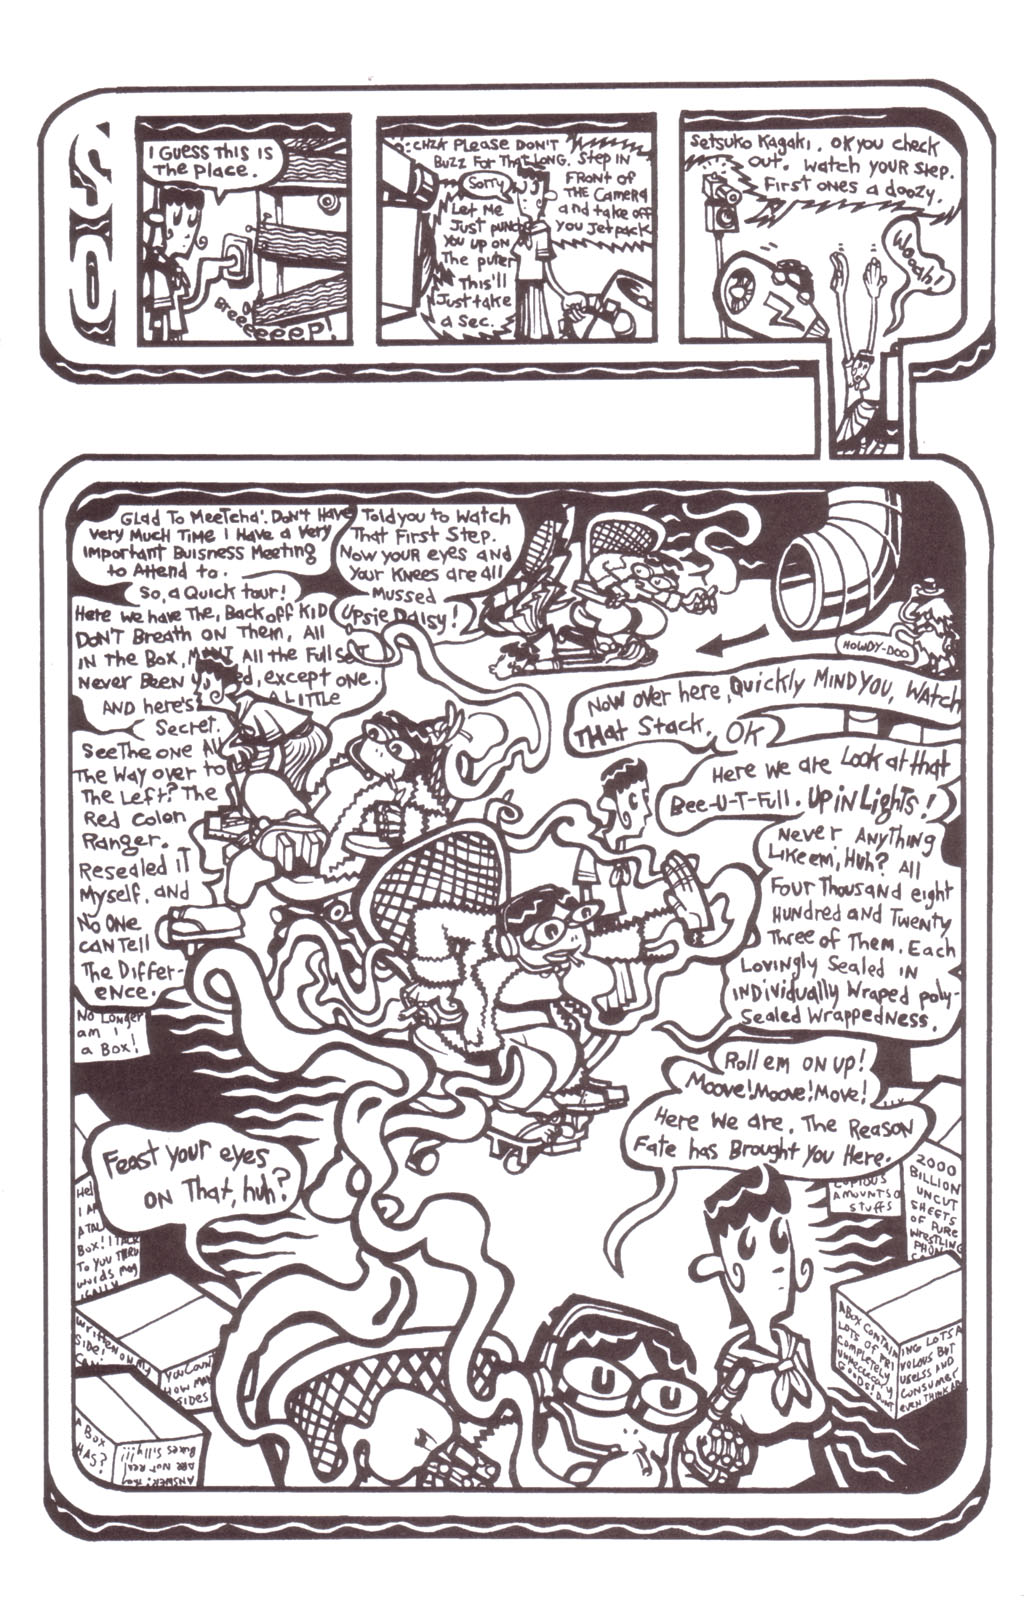 SO
I GUESS THIS IS
THE PLACE.
BREEEEEEEP!
PLEASE DON'T
BUZZ FOR THAT LONG. STEP IN
FRONT OF
THE CAMERA
AND TAKE OFF
YOU JETPACK
SORRY
LET ME
JUST PUNCH
YOU UP ON
THE PUTER
THIS'LL
JUST TAKE
A SEC.
SETSUKO KAGAKI. OK YOU CHECK
OUT. WATCH YOUR STEP.
FIRST ONES A DOOZY.
WOOAH!
GLAD TO MEETCHA'. DON'T HAVE
VERY MUCH TIME I HAVE A VERY
IMPORTANT BUISNESS MEETING
TO ATTEND TO.
TOLD YOU TO WATCH
THAT FIRST STEP.
NOW YOUR EYES AND
YOUR KNEES ARE ALL
MUSSED
UPSIE DAISY!
HOWDY-DOO
SO, A QUICK TOUR!
HERE WE HAVE THE, BACK OFF KID
DON'T BREATH ON THEM, ALL
IN THE BOX, MINT ALL THE FULL SET
NEVER BEEN
, EXCEPT ONE.
AND HERE'S A LITTLE
SECRET.
SEE THE ONE ALL
THE WAY OVER TO
THE LEFT? THE
RED COLON
RANGER.
RESEALED IT
MYSELF, AND
NO ONE
CAN TELL
THE DIFFER-
ENCE.
NOW OVER HERE, QUICKLY MIND YOU, WATCH
THAT STACK, OK
HERE WE ARE LOOK AT THAT
BEE-U-T-FULL. UP IN LIGHTS!
NEVER ANYTHING
LIKE EM, HUH? ALL
FOUR THOUSAND EIGHT
HUNDRED AND TWENTY
THREE OF THEM. EACH
LOVINGLY SEALED IN
INDIVIDUALLY WRAPED POLY-
SEALED WRAPPEDNESS.
NO LONGER
AM I
A BOX!
ROLL EM ON UP!
MOOVE! MOOVE! MOVE!
HERE WE ARE. THE REASON
FATE HAS BROUGHT YOU HERE.
FEAST YOUR EYES
ON THAT, HUH?
I AM
A TAL
BOX! I TALK
TO YOU THRU
WORDS MAG
ICALLY
WRITTEN ON MY
SIDE!
CAN
YOU COUNT
HOW MANY
SIDES
A BOX
HAS?
ANSWER:
ARE NOT REAL
BOXES SILLY!!!
COPIOUS
AMOUNTS O
STUFFS
2000
BILLION
UNCUT
SHEETS
OF PURE
WRESTLING
PHONE
A BOX CONTAIN
ING LOTS A
LOTS OF FRI
VOLOUS BUT
COMPLETELY
USELSS AND
UNNECCECITY
CONSUMER
GOODS! DONT
EVEN THINK